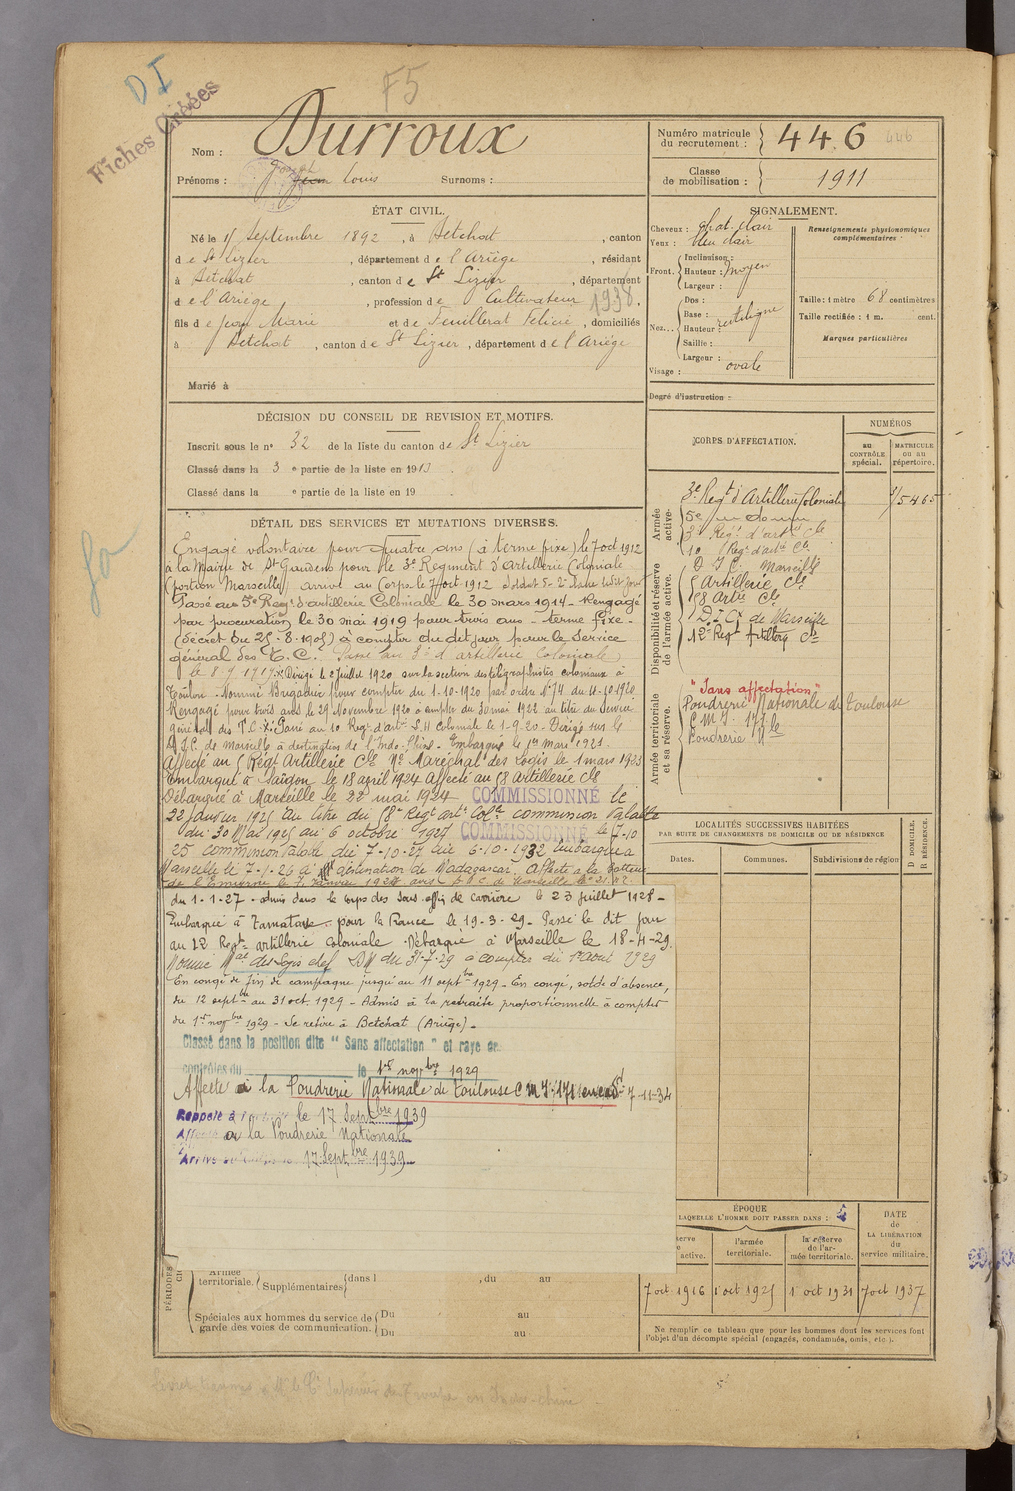 DI
F5
Fiches Créées
Nom : Durroux
Prénoms : Jean Louis Surnoms :
Numéro matricule du recrutement : 446 446
Classe de mobilisation : 1911
ÉTAT CIVIL.
Né le Septembre 1892, à Betchat, canton
de St Lizier, département de l'Ariège, résidant
à Betchat, canton de St Lizier, département
de l'Ariège, profession de Cultivateur 1938.
fils de Jean Marie et de Feuillerat Félicie, domiciliés
à Betchat, canton de St Lizier, département de l'Ariège
Marié à
SIGNALEMENT.
Cheveux : chat. clair
Yeux : bleu clair
Front. Inclinaison :
Hauteur : moyen
Largeur :
Nez... Dos :
Base :
Hauteur : rectiligne
Saillie :
Largeur :
Visage : ovale
Renseignements physionomiques complémentaires
Taille : 1 mètre 68 centimètres
Taille rectifiée : 1 m. cent.
Marques particulières
Degré d'instruction :
DÉCISION DU CONSEIL DE REVISION ET MOTIFS.
Inscrit sous le n° 32 de la liste du canton de St Lizier
Classé dans la 3 e partie de la liste en 1913
Classé dans la e partie de la liste en 19
CORPS D'AFFECTATION.
NUMÉROS
au CONTRÔLE spécial.
MATRICULE ou au répertoire.
Armée active.
3e Regt d'Artillerie Coloniale 5465
5e
3e Regt d'art Cle
10 Regt d'art Cle
D I C Marseille
Disponibilité et réserve de l'armée active.
5 Artillerie Cle
58 Artie Cle
D.I.Cx de Marseille
12e Regt Artillerie Cle
Armée territoriale et sa réserve.
"Sans affectation"
Poudrerie Nationale de Toulouse
Poudrerie Nle
DÉTAIL DES SERVICES ET MUTATIONS DIVERSES.
Engagé volontaire pour quatre ans (à terme fixe) le 7 oct 1912
à la Mairie de St Gaudens pour le 3e Régiment d'Artillerie Coloniale
(portion Marseille) arrivé au Corps le 7 oct 1912
Passé au 5e Regt d'artillerie Coloniale le 30 mars 1914 - Rengagé
par procuration le 30 mai 1919 pour trois ans - terme fixe -
(décret du 25-8-1905) à compter du dit jour pour le service
général des T.C. Passé au 3e d'artillerie coloniale
Dirigé le 2 Juillet 1920 sur la section des télégraphistes coloniaux à
Toulon - Nommé Brigadier pour compter du 1-10-1920 par ordre N° 74 du 4-10-1920
Rengagé pour trois ans le 29 Novembre 1920 à compter du 30 mai 1922 au titre du service
général des T.C. Passé au 10 Regt d'artie Coloniale le 1-9-20 - Dirigé sur le
D.I.C. de Marseille à destination de l'Indo-Chine - Embarqué le 1er mars 1921
Affecté au 5 Régt Artillerie Cle Né Maréchal des Logis le 1 mars 1923
Embarqué à Saïgon le 18 april 1924 Affecté au 58 Artillerie Cle
Débarqué à Marseille le 22 mai 1924 COMMISSIONNÉ le
22 Janvier 1925 au titre du 58e Regt art. Colle commission valable
du 30 Mai 1925 au 6 octobre 1927 COMMISSIONNÉ le 7-10
25 commission valable du 7-10-27 au 6-10-1932 embarqué à
Marseille le 7-1-26 à destination de Madagascar. Affecté à la Batterie
du 1-1-27 - admis dans le corps des sous-offrs de carrière le 23 juillet 1928 -
Embarqué à Tamatave pour la France le 19-3-29 - Passé le dit jour
au 12 Regt artillerie coloniale - Débarqué à Marseille le 18-4-29
Nommé Mal des Logis chef DM du 31-7-29 à compter du 1er Aout 1929
En congé de fin de campagne jusqu'au 11 septbre 1929 - En congé, solde d'absence,
du 12 septbre au 31 oct. 1929 - Admis à la retraite proportionnelle à compter
du 1er novbre 1929 - Se retire à Betchat (Ariège) -
Classé dans la position dite "Sans affectation" et rayé des
contrôles du le 1er novbre 1929
Affecté à la Poudrerie Nationale de Toulouse 7-11-34
Rappelé à le 17 Septbre 1939
Affecté à la Poudrerie Nationale
Arrivé 17 Septbre 1939
LOCALITÉS SUCCESSIVES HABITÉES
PAR SUITE DE CHANGEMENTS DE DOMICILE OU DE RÉSIDENCE
Dates. Communes. Subdivisions de région
D DOMICILE. R RÉSIDENCE.
ÉPOQUE
LAQUELLE L'HOMME DOIT PASSER DANS :
active.
l'armée territoriale.
la réserve de l'armée territoriale.
DATE de LA LIBÉRATION du service militaire.
7 oct 1916 1 oct 1925 1 oct 1931 7 oct 1937
PÉRIODES
Armée territoriale. Supplémentaires dans l , du au
Spéciales aux hommes du service de garde des voies de communication. Du au
Du au
Ne remplir ce tableau que pour les hommes dont les services font
l'objet d'un décompte spécial (engagés, condamnés, omis, etc.).